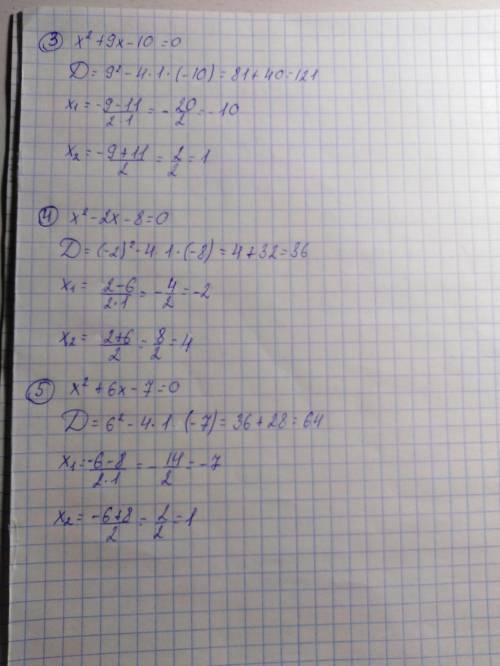 ③ x² + 9x - 10 = 0
D = 9² - 4 · 1 · (-10) = 81 + 40 = 121
x₁ = (-9-11)/(2·1) = -20/2 = -10
x₂ = (-9+11)/2 = 2/2 = 1
④ x² - 2x - 8 = 0
D = (-2)² - 4 · 1 · (-8) = 4 + 32 = 36
x₁ = (2-6)/(2·1) = -4/2 = -2
x₂ = (2+6)/2 = 8/2 = 4
⑤ x² + 6x - 7 = 0
D = 6² - 4 · 1 (-7) = 36 + 28 = 64
x₁ = (-6-8)/(2·1) = -14/2 = -7
x₂ = (-6+8)/2 = 2/2 = 1